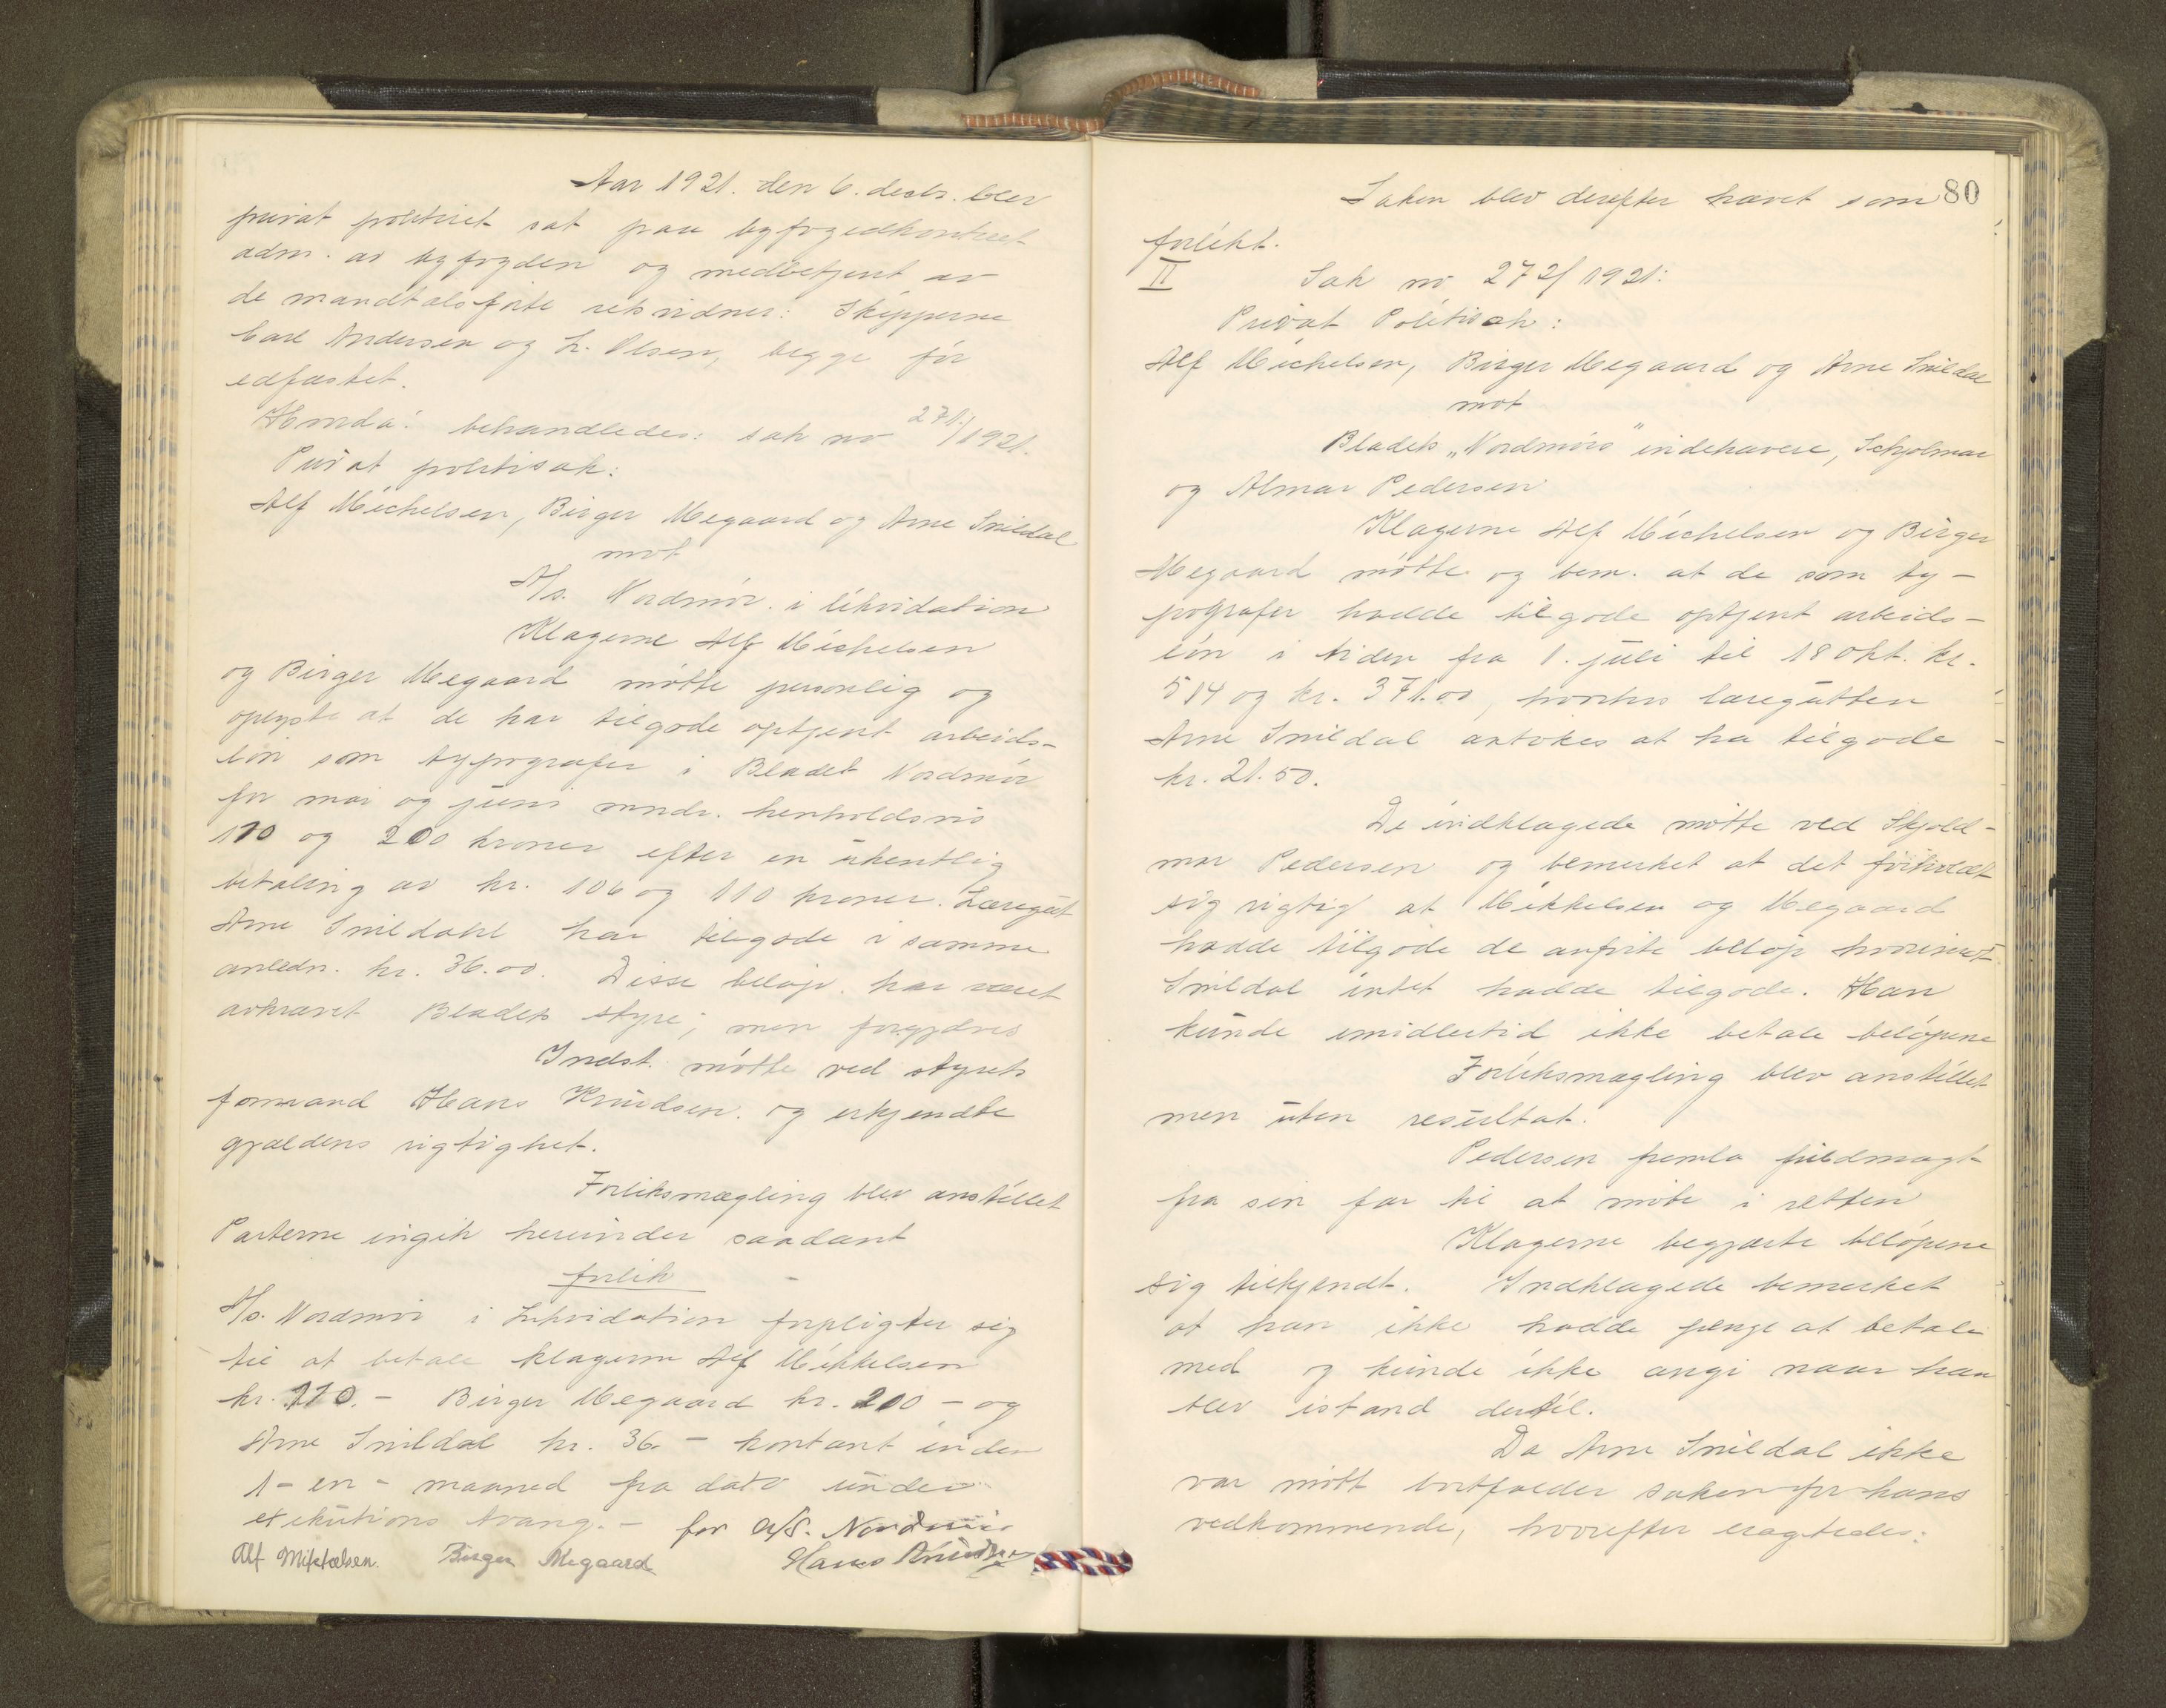 Aar 1921. den 6. decbr. blev
privat politiret sat paa byfogedkontoret
adm. av byfogden og medbetjent av
de mandtalsførte retsvidner: Skipperne
Carl Andersen og L. Olsen, begge før
edfæstet.
Hvorda: behandledes: sak no 271/1921.
Privat politisak:
Alf Michelsen, Birger Megaard og Arne Snildal
mot
A/s. Nordmør i likvidation
Klagerne Alf Michelsen
og Birger Megaard møtte personlig og
oplyste at de har tilgode optjent arbeids-
løn som typografer i Bladet Nordmør
for mai og juni mndr. henholdsvis
110 og 200 kroner efter en ukentlig
betaling av kr. 106 og 110 kroner. Læregut
Arne Snildahl har tilgode i samme
anledn. kr. 36.00. Disse beløp har været
avkrævet Bladets styre; men forgjæves
Indst. møtte ved styrets
formand Hans Knudsen og erkjendte
gjældens rigtighet.
Forliksmægling blev anstillet
Parterne ingik herunder saadant
forlik
A/s. Nordmør i Likvidation forpligter sig
til at betale klagerne Alf Mikkelsen
kr. 110.- Birger Megaard kr. 200 - og
Arne Snildal kr. 36.- kontant inden
1 - en - maaned fra dato under
exekutions tvang. - for A/S. Nordmør
Alf Mikkelsen. Birger Megaard Hans Knudsen
80
Saken blev derefter hævet som
forlikt.
II
Sak no 272/1921:
Privat Politisak:
Alf Michelsen, Birger Megaard og Arne Snildal
mot
Bladets "Nordmørs" indehavere, Schjolmar
og Almar Pedersen
Klagerne Alf Michelsen og Birger
Megaard møtte og bem. at de som ty-
pografer hadde tilgode optjent arbeids-
løn i tiden fra 1. juli til 18 okt. kr.
514 og kr. 371.00, hvorhos læregutten
Arne Snildal antokes at ha tilgode
kr. 21.50.
De indklagede møtte ved Skjold-
mar Pedersen og bemerket at det forholdt
sig rigtig at Mikkelsen og Megaard
hadde tilgode de anførte beløp hvorimot
Snildal intet hadde tilgode. Han
kunde imidlertid ikke betale beløpene
Forliksmægling blev anstillet
men uten resultat.
Pedersen fremla fuldmagt
fra sin far til at møte i retten
Klagerne begjærte beløpene
sig tilkjendt. Indklagede bemerket
at han ikke hadde penge at betale
med og kunde ikke angi naar han
blev istand dertil.
Da Arne Snildal ikke
var møtt bortfalder saken for hans
vedkommende, hvorefter eragtedes: